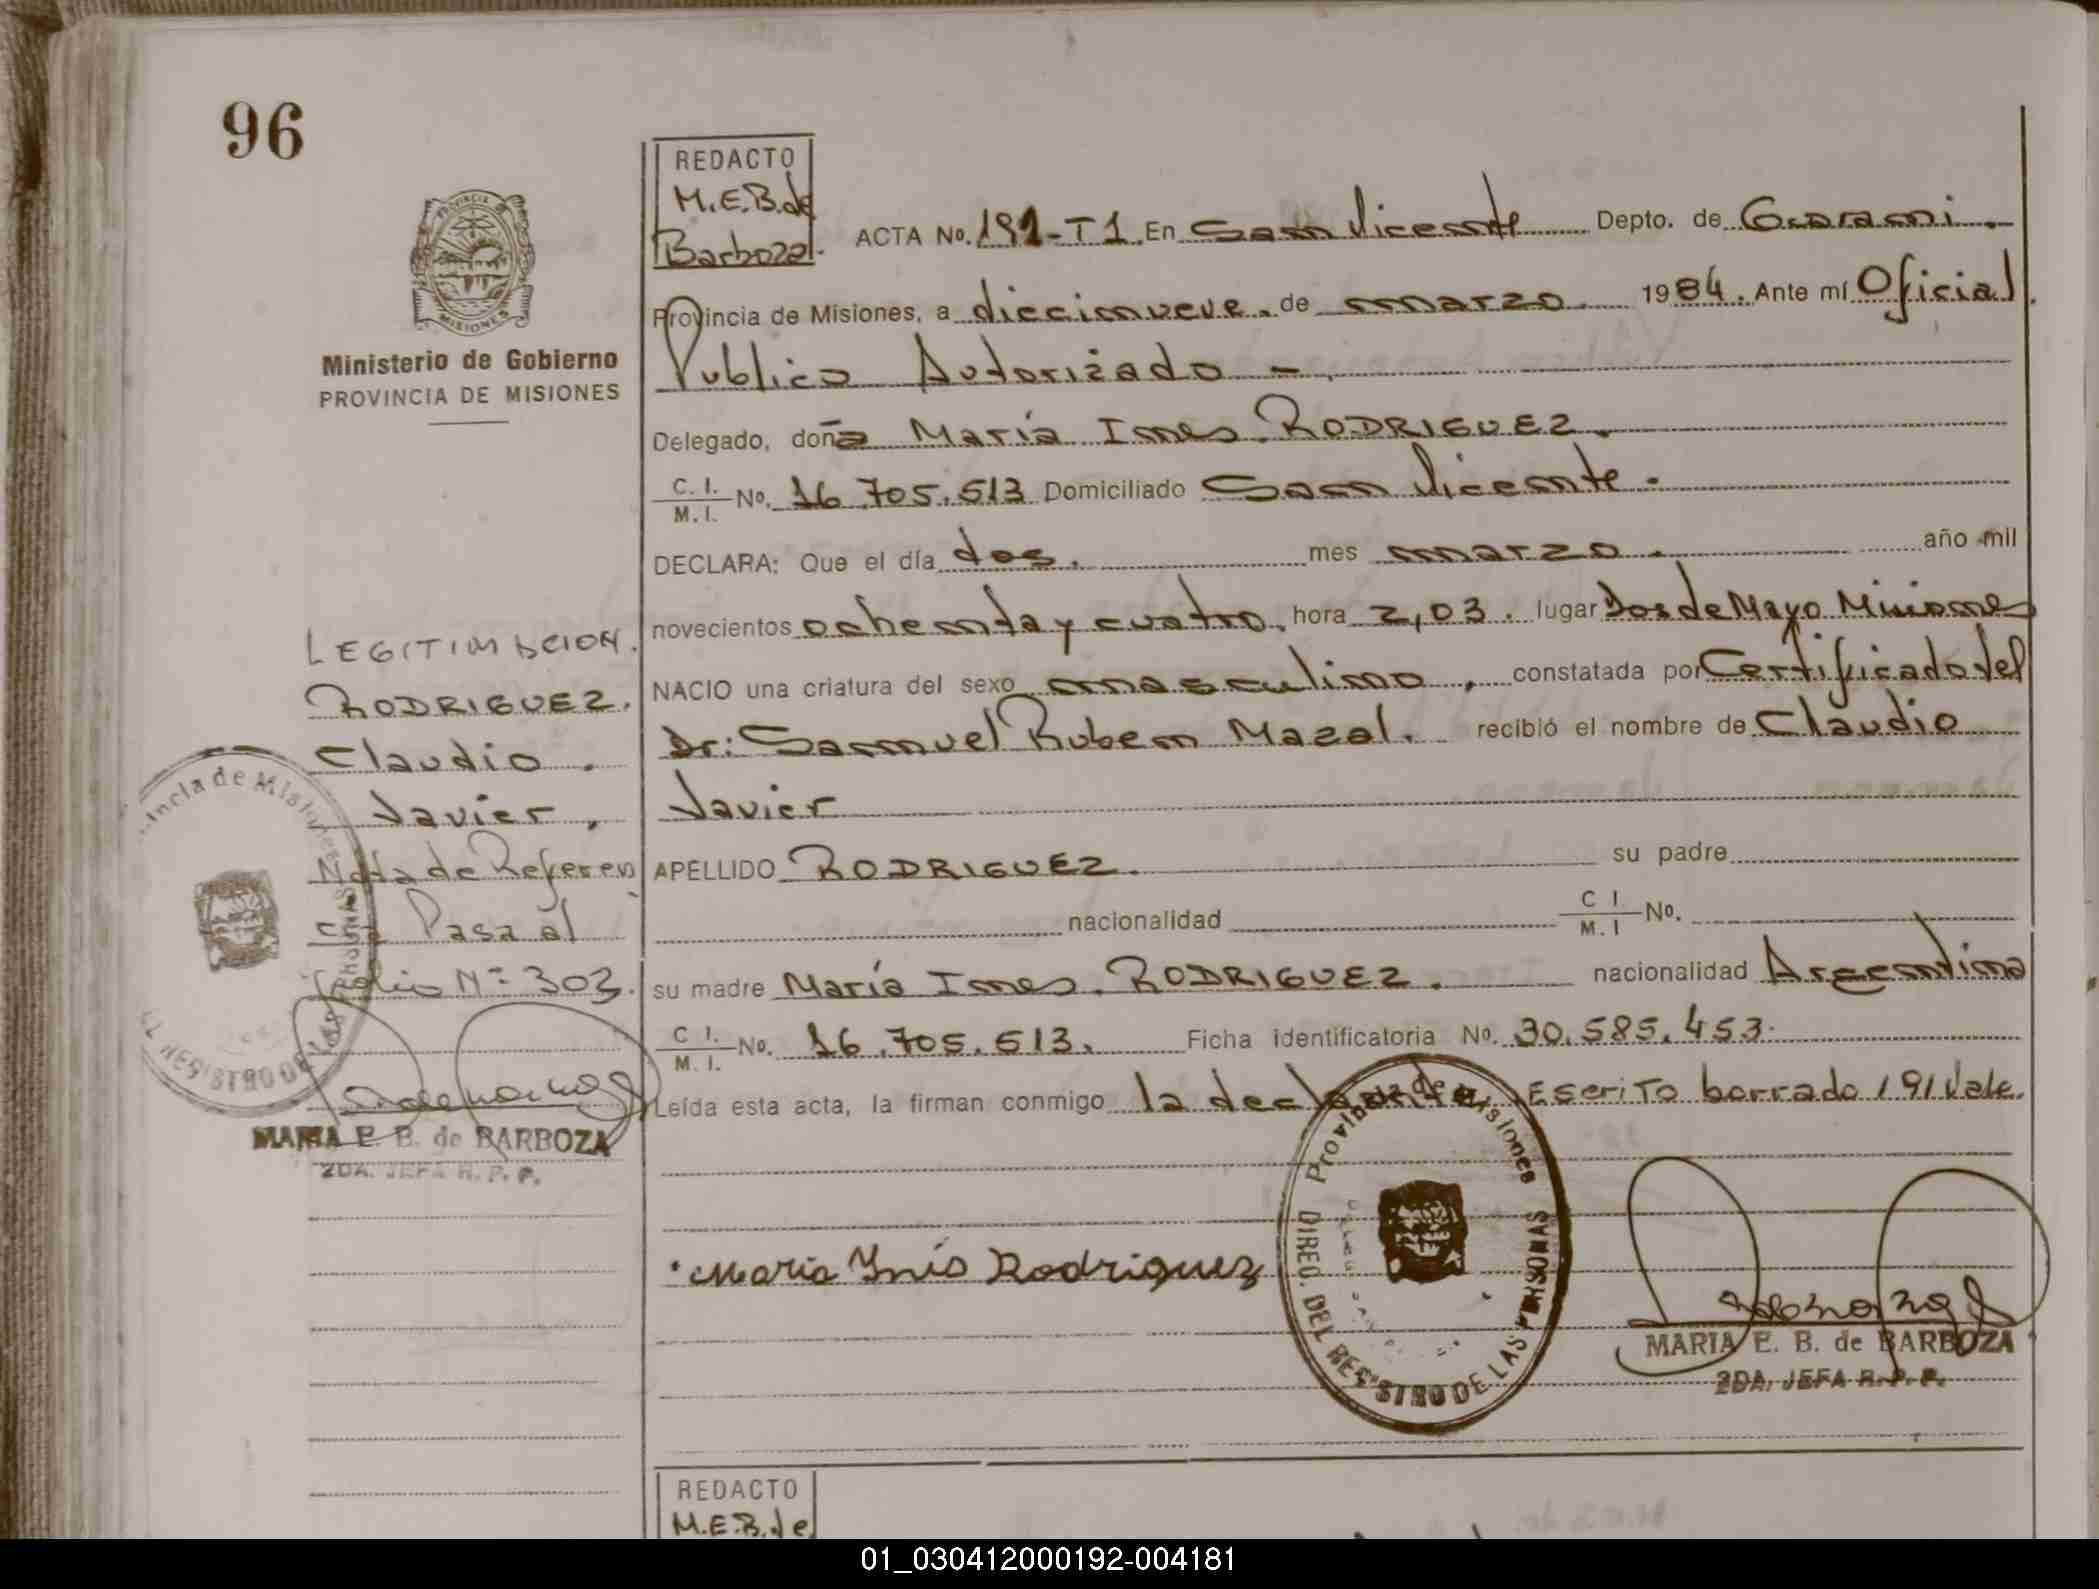 96
PROVINCIA DE
MISIONES
Ministerio de Gobierno
PROVINCIA DE MISIONES
REDACTO
M.E.B.de
Barboza.
ACTA No. 191-T1. En San Vicente Depto. de Guarani.
Provincia de Misiones, a diecinueve. de marzo. 1984. Ante mí Oficial
Publico Autorizado -.
Delegado, doña María Ines. RODRIGUEZ.
C. I. / M. I. No. 16.705.513 Domiciliado San Vicente.
DECLARA: Que el día dos. mes marzo. año mil
novecientos ochenta y cuatro, hora 2,03. lugar Dos de Mayo Misiones
NACIO una criatura del sexo masculino, constatada por Certificado del
Dr: Samuel Ruben Mazal. recibió el nombre de Claudio
Javier
APELLIDO RODRIGUEZ. su padre
nacionalidad C I / M. I No.
su madre María Ines. RODRIGUEZ. nacionalidad Argentina
C I. / M. I. No. 16.705.513. Ficha identificatoria No. 30.585.453.
Leída esta acta, la firman conmigo la declarante. Escrito borrado 191 Vale.
Maria Inés Rodriguez
Provincia de Misiones
DIREC. DEL REGISTRO DE LAS PERSONAS
MARIA E. B. de BARBOZA
2DA. JEFA R. P. P.
LEGITIMACION.
RODRIGUEZ.
Claudio.
Javier.
Nota de Referen
cia Pasa al
folio Nº 303.
Provincia de Misiones
DEL REGISTRO DE LAS PERSONAS
MARIA E. B. de BARBOZA
2DA. JEFA R. P. P.
REDACTO
M.E.B.de
01_030412000192-004181